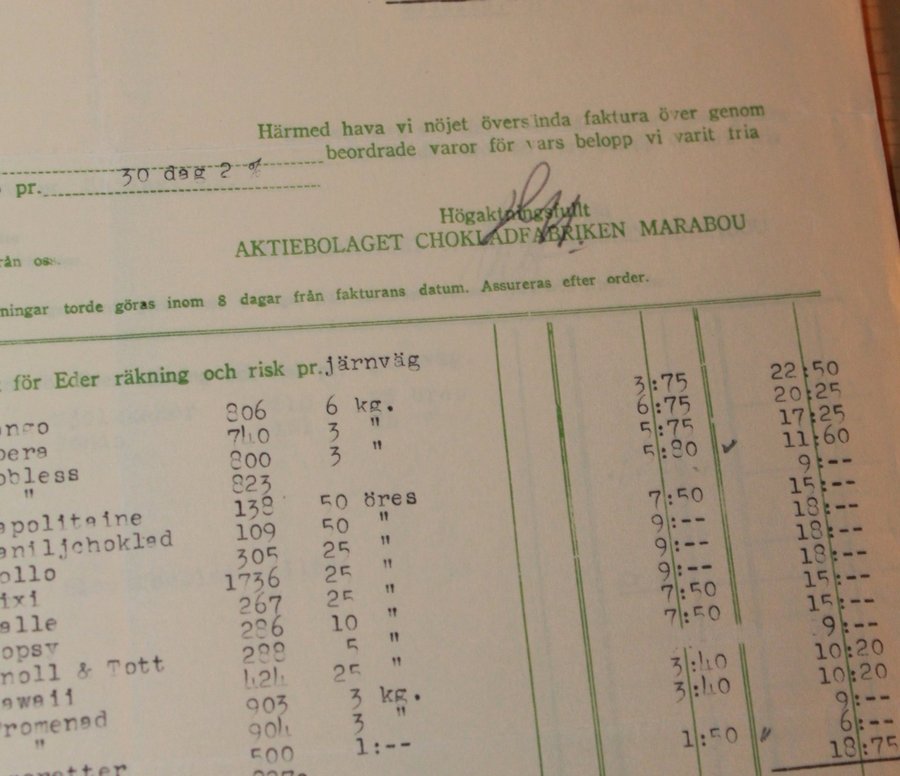 Härmed hava vi nöjet översända faktura över genom
beordrade varor för vars belopp vi varit fria
pr. 30 dag 2 %
Högaktningsfullt
AKTIEBOLAGET CHOKLADFABRIKEN MARABOU
rån oss.
ningar torde göras inom 8 dagar från fakturans datum. Assureras efter order.
för Eder räkning och risk pr. järnväg
ngo 806 6 kg. 3:75 22:50
pera 740 3 " 6:75 20:25
obless 800 3 " 5:75 17:25
" 823 5:80 11:60
apolitaine 138 50 öres 9:--
aniljchoklad 109 50 " 7:50 15:--
ollo 305 25 " 9:-- 18:--
ixi 1736 25 " 9:-- 18:--
alle 267 25 " 9:-- 18:--
opsy 286 10 " 7:50 15:--
noll & Tott 288 5 " 7:50 15:--
awaii 424 25 " 9:--
romenad 903 3 kg. 3:40 10:20
" 904 3 " 3:40 10:20
retter 500 1:-- 9:--
1:50 6:--
18:75